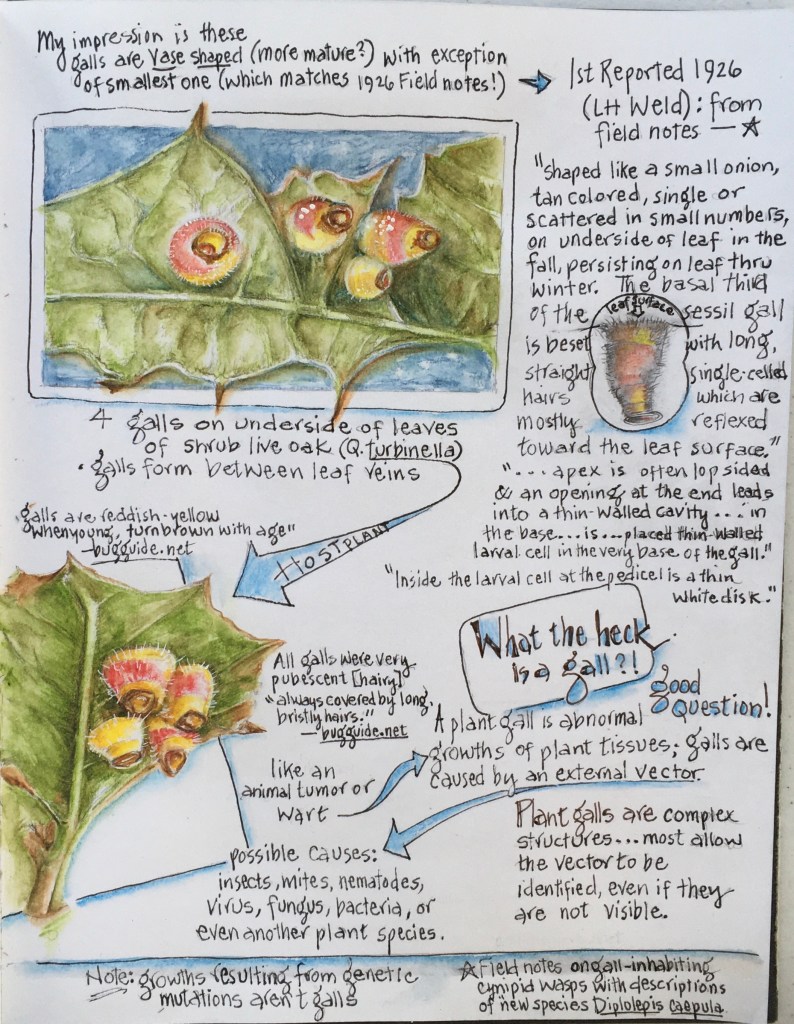 My impression is these
galls are Vase shaped (more mature?) with exception
of smallest one (which matches 1926 Field notes!)
1st Reported 1926
(LH Weld): from
field notes — ☆
"Shaped like a small onion,
tan colored, single or
scattered in small numbers,
on underside of leaf in the
fall, persisting on leaf thru
winter. The basal third
of the sessil gall
leaf surface
is beset with long,
straight single-celled
hairs which are
mostly reflexed
toward the leaf surface."
"... apex is often lop sided
& an opening at the end leads
into a thin-walled cavity... in
the base...is...placed thin-walled
larval cell in the very base of the gall."
"Inside the larval cell at the pedicel is a thin
white disk."
4 galls on underside of leaves
of shrub live oak (Q. turbinella)
• galls form between leaf veins
HOST PLANT
galls are reddish-yellow
when young, turn brown with age"
— bugguide.net
All galls were very
pubescent [hairy]
"always covered by long,
bristly hairs."
— bugguide.net
What the heck
is a gall?!
good
Question!
A plant gall is abnormal
growths of plant tissues; galls are
caused by an external vector.
like an
animal tumor or
wart
Plant galls are complex
structures...most allow
the vector to be
identified, even if they
are not visible.
possible causes:
insects, mites, nematodes,
virus, fungus, bacteria, or
even another plant species.
Note: growths resulting from genetic
mutations aren't galls
☆ Field notes on gall-inhabiting
cynipid wasps with descriptions
of new species Diplolepis caepula.